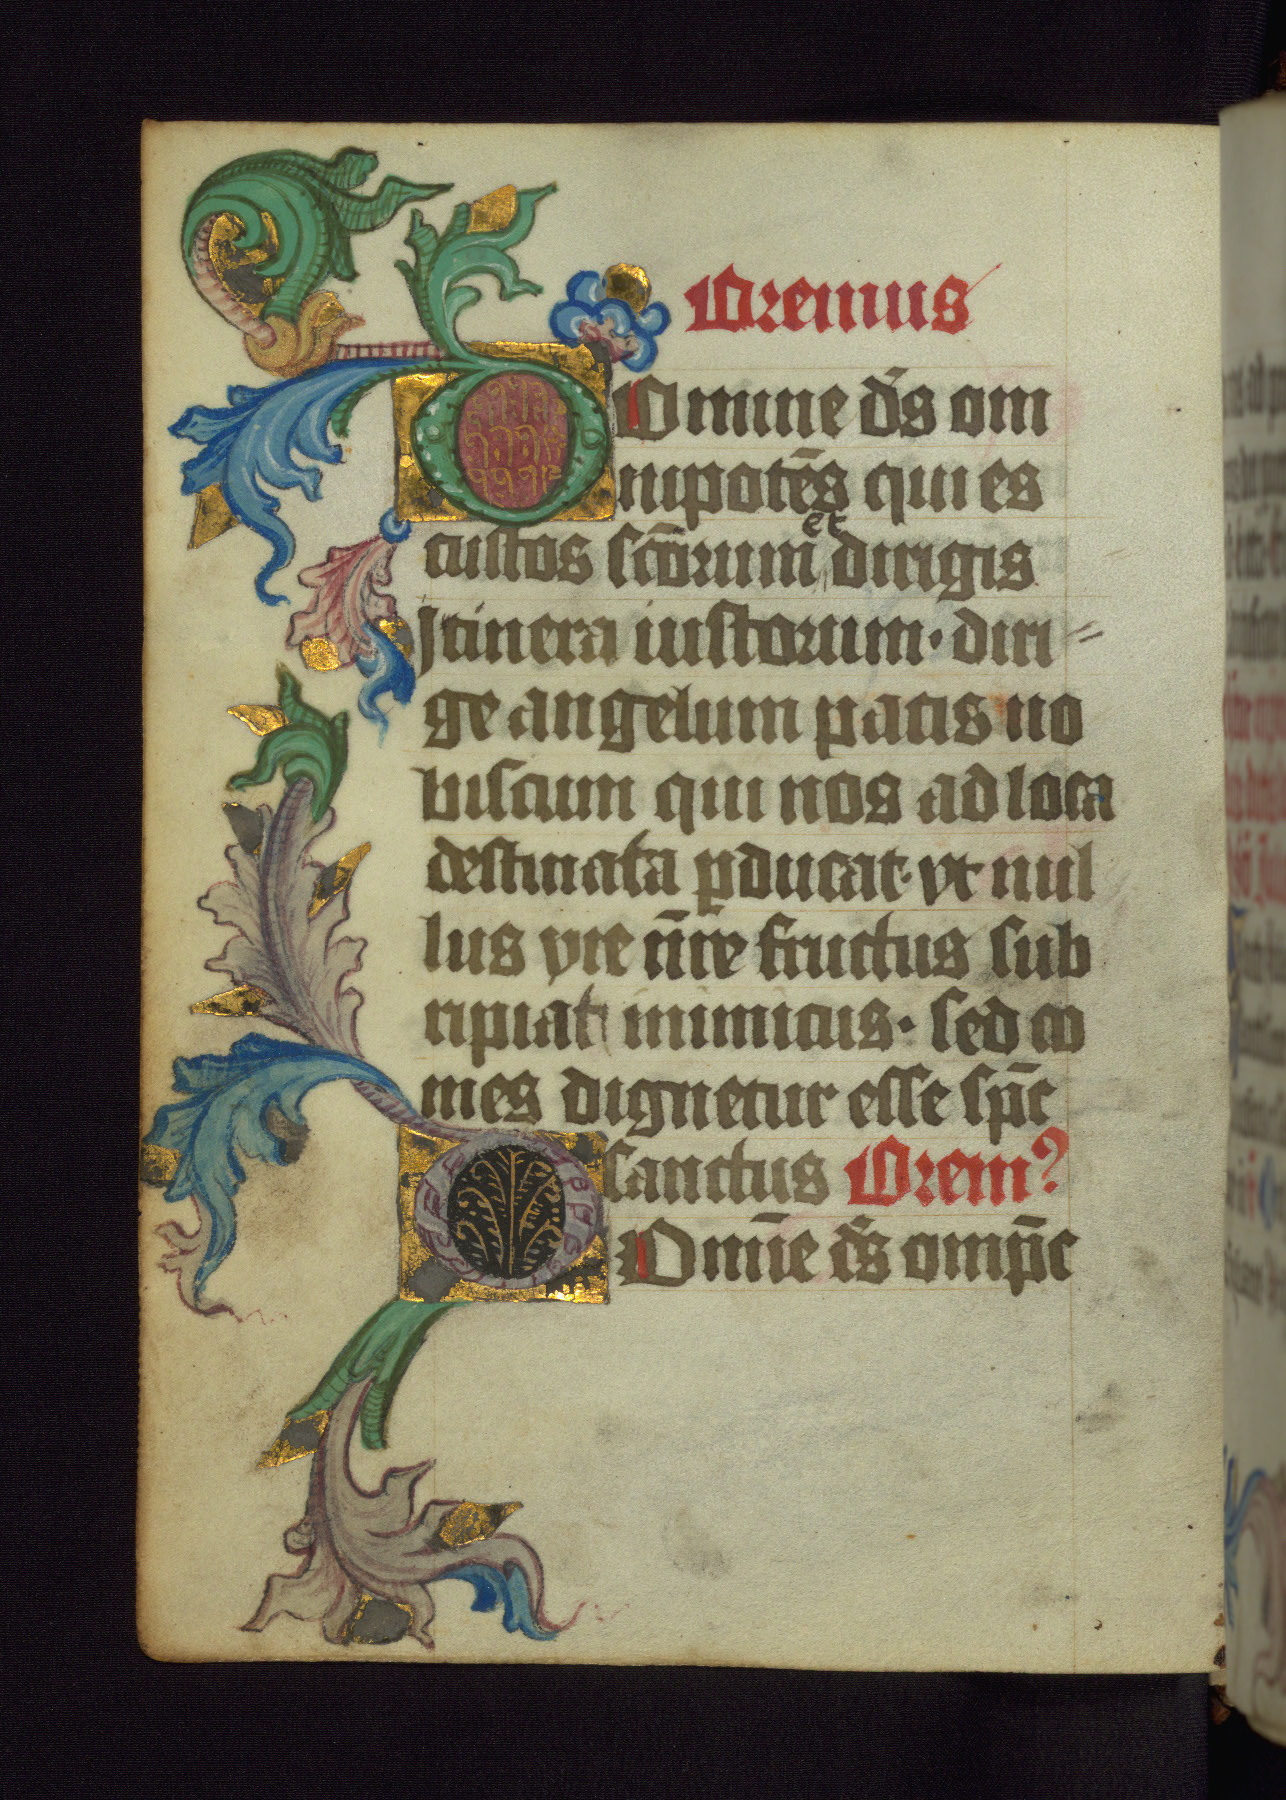 Oremus
Domine dn̄s om
nipotēs qui es
et
custos scōrum dirigis
Itinera iustorum · diri
ge angelum pacis no
biscum qui nos ad loca
destinata ꝑducat · vt nul
lus vie nr̄e fructus sub
ripiat inimicus · sed co
mes dignetur esse sp̄c
sanctus Orem?
Domīe ds̄ omp̄c